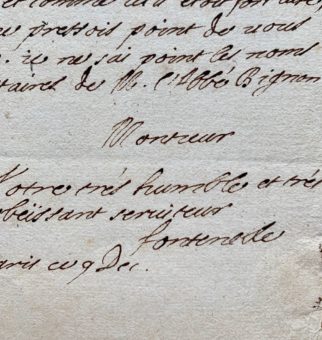 et comme
pressois point de vous
je ne sai point les noms
taires de M. l'Abbé Bignon
Monsieur
Votre trés humble et trés
obëissant serviteur
fontenelle
aris ce 9 Dec.